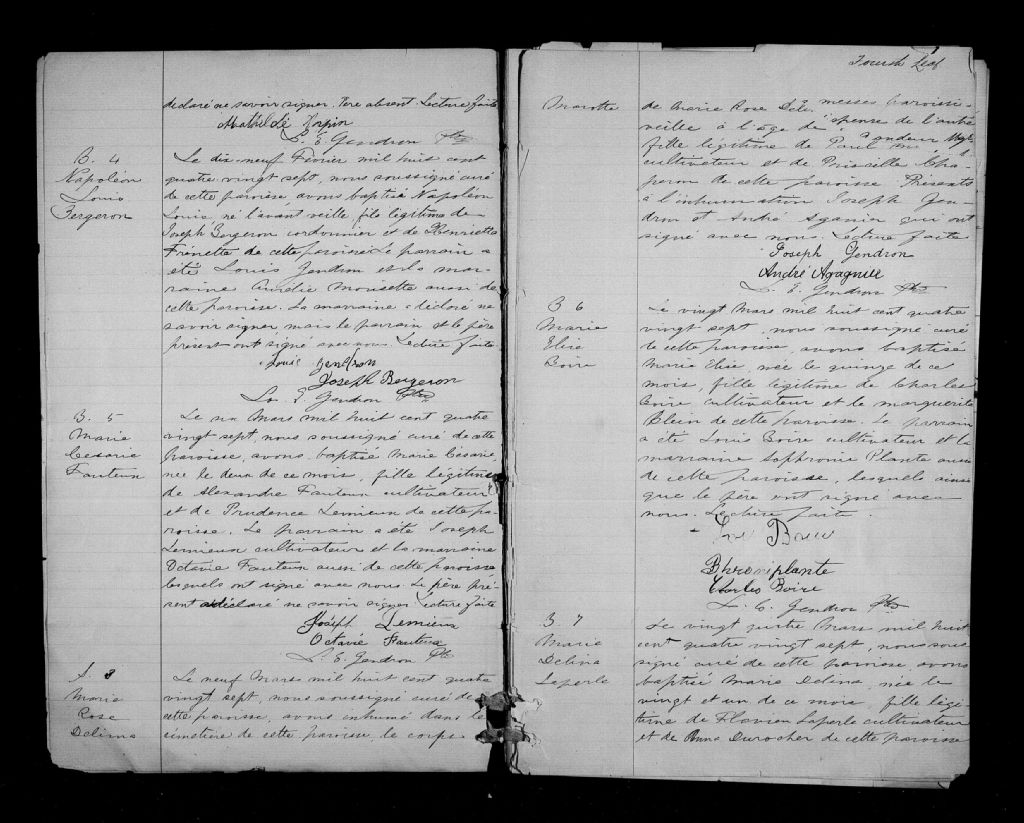 declaré ne savoir signer. Père absent. Lecture faite
Mathilde
L. E. Gendron Ptre
B. 4
Napoléon
Louis
Bergeron
Le dix neuf Février mil huit cent
quatre vingt sept, nous soussigné curé
de cette paroisse, avons baptisé Napoléon
Louis né l'avant veille, fils légitime de
Joseph Bergeron cordonnier et de Henriette
Frénette de cette paroisse Le parrain a
été Louis Gendron et la mar-
raine Aurélie Morisette aussi de
cette paroisse. La marraine a declaré ne
savoir signer, mais le parrain et le père
présent ont signé avec nous. Lecture faite
Louis gendron
Joseph Bergeron
L. E. Gendron Ptre
B. 5
Marie
Césarie
Fauteux
Le six Mars mil huit cent quatre
vingt sept, nous soussigné curé de cette
paroisse, avons baptisé Marie Césarie,
née le deux de ce mois, fille légitime
de Alexandre Fauteux cultivateur
et de Prudence Lemieux de cette pa-
roisse. Le parrain a été Joseph
Lemieux cultivateur et la marraine
Octavie Fauteux aussi de cette paroisse
lesquels ont signé avec nous. Le père pré-
sent a déclaré ne savoir signer Lecture faite
Joseph Lemieux
Octavie Fauteux
L. E. Gendron Ptre
S. 3
Marie
Rose
Délima
Le neuf Mars mil huit cent quatre
vingt sept, nous soussigné curé de
cette paroisse, avons inhumé dans le
cimetière de cette paroisse, le corps
Fourth Leaf
Marotte
de Marie Rose messes paroissi-
veille à l'âge de spense de l'autre
fille légitime de Paul
cultivateur et de Priscille Cha-
peron de cette paroisse Présents
à l'inhumation Joseph Gen-
dron et André Aganier qui ont
signé avec nous. Lecture faite
Joseph Gendron
André Agagnier
L. E. Gendron Ptre
B 6
Marie
Elise
Boire
Le vingt Mars mil huit cent quatre
vingt sept, nous soussigné curé
de cette paroisse, avons baptisé
Marie Elise, née le quinze de ce
mois, fille légitime de Charles
Boire cultivateur et le marguerite
Blein de cette paroisse. Le parrain
a été Louis Boire cultivateur et la
marraine Sophronie Plante aussi
de cette paroisse, lesquels ainsi
que le père ont signé avec
nous. Lecture faite.
Charles Boire
L. E. Gendron Ptre
B. 7
Marie
Delina
Laperle
Le vingt quatre Mars mil huit
cent quatre vingt sept, nous sous
signé curé de cette paroisse, avons
baptisé Marie Delina, née le
vingt et un de ce mois, fille légi-
time de Flavien Laperle cultivateur
et de Anna Durocher de cette paroisse